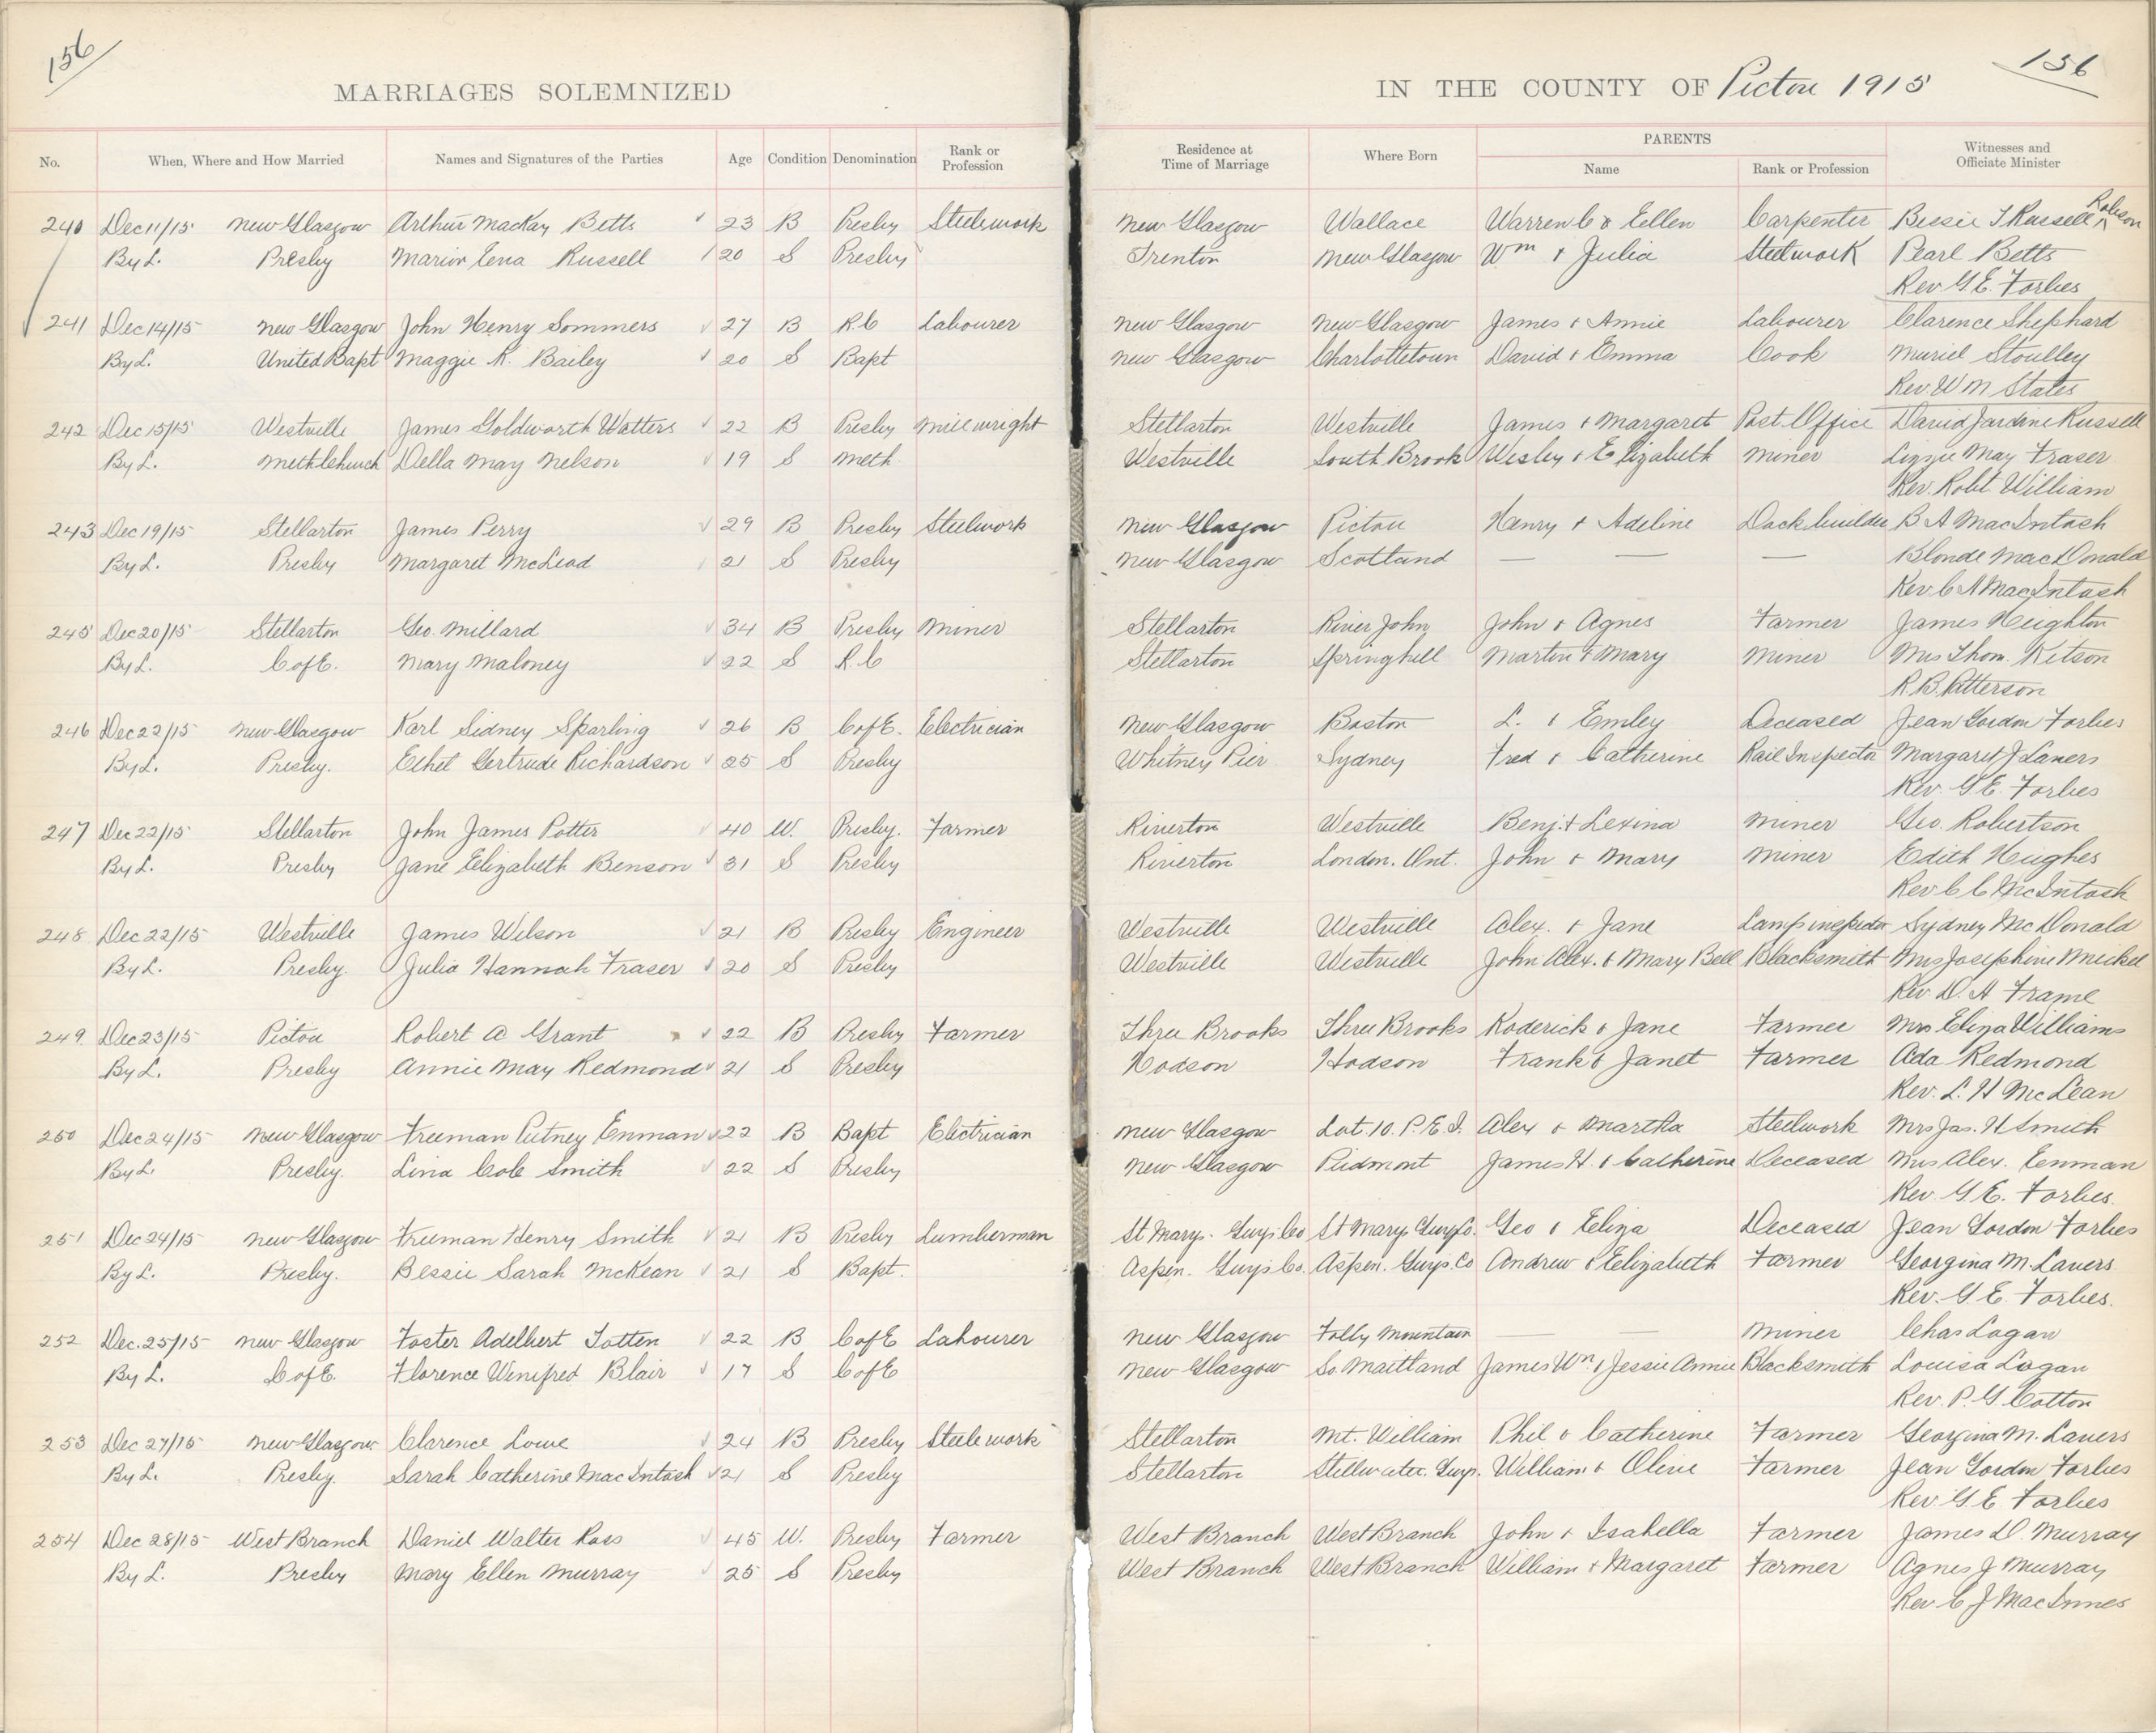 156
156
MARRIAGES SOLEMNIZED IN THE COUNTY OF Pictou 1915
No. When, Where and How Married Names and Signatures of the Parties Age Condition Denomination Rank or Profession Residence at Time of Marriage Where Born PARENTS Name Rank or Profession Witnesses and Officiate Minister
240 Dec 11/15 New Glasgow Arthur MacKay Betts 23 B Presby Steelework New Glasgow Wallace Warren C & Ellen Carpenter Bessie T Russell Robson
By L. Presby Marion Lena Russell 20 S Presby Trenton New Glasgow Wm & Julia Steelwork Pearl Betts
Rev G E. Forbes
241 Dec 14/15 New Glasgow John Henry Sommers 27 B R.C Labourer New Glasgow New Glasgow James & Annie Labourer Clarence Shephard
By L. United Bapt Maggie R. Bailey 20 S Bapt New Glasgow Charlottetown David & Emma Cook Muriel Stoutley
Rev. W M States
242 Dec 15/15 Westville James Goldworth Watters 22 B Presby Millwright Stellarton Westville James & Margaret Post Office David Jardine Russell
By L. Meth Church Della May Nelson 19 S Meth. Westville South Brook Wesley & Elizabeth Miner Lizzie May Fraser
Rev. Robt William
243 Dec 19/15 Stellarton James Perry 29 B Presby Steelwork New Glasgow Pictou Henry & Adeline Dockbuilder B A MacIntosh
By L. Presby Margaret McLeod 21 S Presby New Glasgow Scotland — — — Blonde MacDonald
Rev C A MacIntosh
245 Dec 20/15 Stellarton Geo. Millard 34 B Presby Miner Stellarton River John John & Agnes Farmer James Heighton
By L. C of E. Mary Maloney 22 S R.C Stellarton Springhill Martin & Mary Miner Mrs Thom. Kitson
R. B. Patterson
246 Dec 22/15 New Glasgow Karl Sidney Sparling 26 B C of E. Electrician New Glasgow Boston L. & Emley Deceased Jean Gordon Forbes
By L. Presby. Ethel Gertrude Richardson 25 S Presby Whitney Pier Sydney Fred & Catherine Rail Inspector Margaret J Lavers
Rev. G E. Forbes
247 Dec 22/15 Stellarton John James Potter 40 W. Presby. Farmer Riverton Westville Benj. & Lexina Miner Geo. Robertson
By L. Presby Jane Elizabeth Benson 31 S Presby Riverton London. Ont. John & Mary Miner Edith Hughes
Rev C C McIntosh
248 Dec 22/15 Westville James Wilson 21 B Presby Engineer Westville Westville Alex. & Jane Lamp inspector Sydney McDonald
By L. Presby. Julia Hannah Fraser 20 S Presby Westville Westville John Alex. & Mary Bell Blacksmith Mrs Josephine Mickel
Rev. D. A Frame
249 Dec 23/15 Pictou Robert A Grant 22 B Presby Farmer Three Brooks Three Brooks Roderick & Jane Farmer Mrs Eliza Williams
By L. Presby Annie May Redmond 21 S Presby Hodson Hodson Frank & Janet Farmer Ada Redmond
Rev. L. H McLean
250 Dec 24/15 New Glasgow Freeman Putney Enman 22 B Bapt Electrician New Glasgow Lot 10. P.E.I. Alex & Martha Steelwork Mrs Jas. H Smith
By L. Presby. Lina Cole Smith 22 S Presby New Glasgow Piedmont James H. & Catherine Deceased Mrs Alex. Eenman
Rev. G. E. Forbes.
251 Dec 24/15 New Glasgow Freeman Henry Smith 21 B Presby Lumberman St Marys. Guys Co St Marys Guys Co. Geo & Eliza Deceased Jean Gordon Forbes
By L. Presby. Bessie Sarah McKean 21 S Bapt. Aspen. Guys Co. Aspen. Guys. Co Andrew & Elizabeth Farmer Georgina M. Lavers
Rev. G. E. Forbes.
252 Dec. 25/15 New Glasgow Foster Adelbert Totten 22 B C of E Labourer New Glasgow Folly Mountain — — Miner Chas Logan
By L. C of E. Florence Winifred Blair 17 S C of E New Glasgow So Maitland James Wm. & Jessie Annie Blacksmith Louisa Logan
Rev. P. G Cotton
253 Dec 27/15 New Glasgow Clarence Lowe 24 B Presby Steelework Stellarton Mt. William Phil & Catherine Farmer Georgina M. Lavers
By L. Presby. Sarah Catherine MacIntosh 21 S Presby Stellarton Stillwater. Guys. William & Olive Farmer Jean Gordon Forbes
Rev. G E Forbes
254 Dec 28/15 West Branch Daniel Walter Ross 45 W. Presby Farmer West Branch West Branch John & Isabella Farmer James D. Murray
By L. Presby Mary Ellen Murray 25 S Presby West Branch West Branch William & Margaret Farmer Agnes J Murray
Rev C J MacInnes